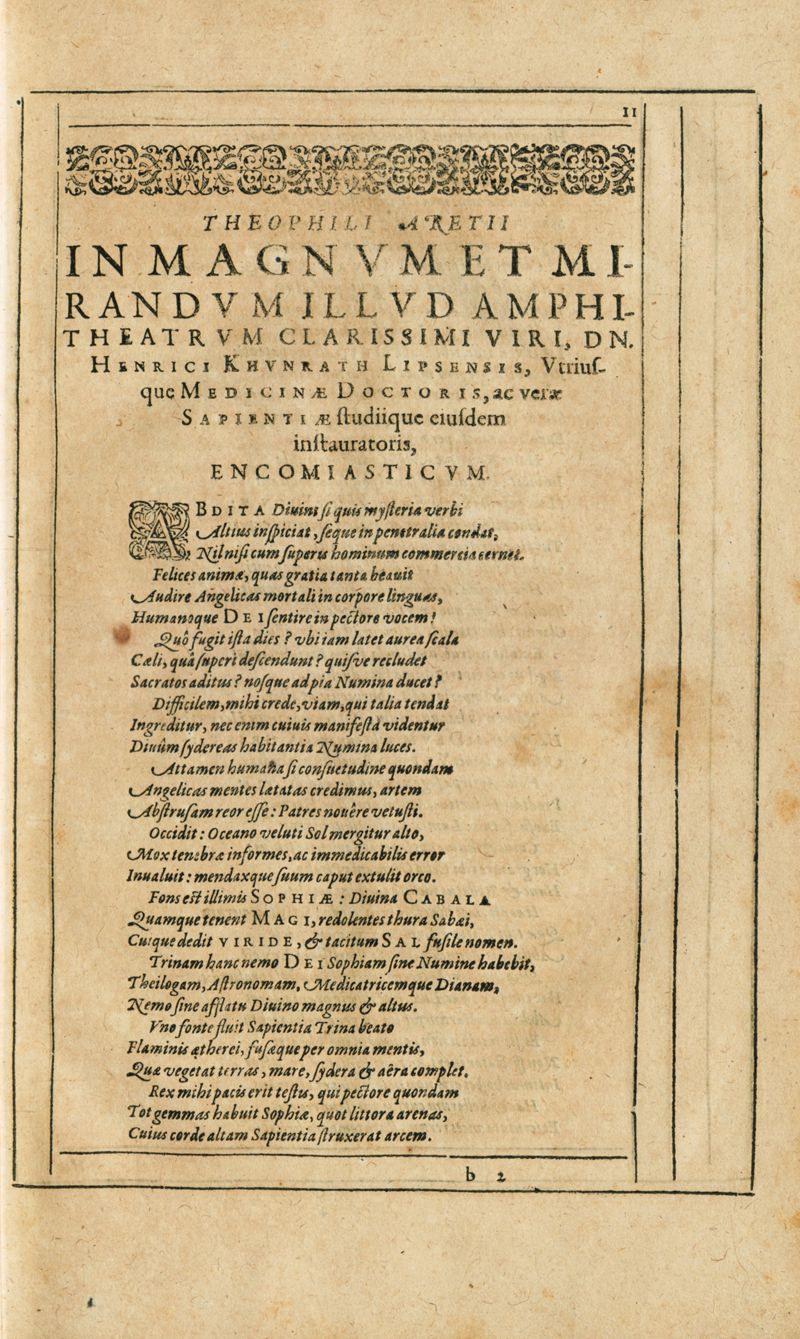 11
THEOPHILI ARETII
IN MAGNVM ET MI-
RANDVM ILLVD AMPHI-
THEATRVM CLARISSIMI VIRI, DN.
HENRICI KHVNRATH LIPSENSIS, Vtriuſ-
que MEDICINÆ DOCTORIS, ac veræ
SAPIENTIÆ ſtudiique eiuſdem
inſtauratoris,
ENCOMIASTICVM.
ABDITA Diuini ſi quis myſteria verbi
Altius inſpiciat, ſeque in penetralia condat,
Nil niſi cum ſuperis hominum commercia cernet.
Felices animæ, quas gratia tanta beauit
Audire Angelicas mortali in corpore linguas,
Humanoque DEI ſentire in pectore vocem!
Quò fugit iſta dies? vbi iam latet aurea ſcala
Cæli, quâ ſuperi deſcendunt? quiſve recludet
Sacratos aditus? noſque ad pia Numina ducet?
Difficilem, mihi crede, viam, qui talia tendat
Ingreditur, nec enim cuiuis manifeſta videntur
Diuûm ſydereas habitantia Numina luces.
Attamen humana ſi conſuetudine quondam
Angelicas mentes lætatas credimus, artem
Abſtruſam reor eſſe: Patres nouêre vetuſti.
Occidit: Oceano veluti Sol mergitur alto,
Mox tenebræ informes, ac immedicabilis error
Inualuit: mendaxque ſuum caput extulit orco.
Fons eſt illimis SOPHIÆ: Diuina CABALA
Quamque tenent MAGI, redolentes thura Sabæi,
Cuique dedit VIRIDE, & tacitum SAL fuſile nomen.
Trinam hanc nemo DEI Sophiam ſine Numine habebit,
Theilogam, Aſtronomam, Medicatricemque Dianam,
Nemo ſine afflatu Diuino magnus & altus.
Vno fonte fluit Sapientia Trina beato
Flaminis ætherei, fuſæque per omnia mentis,
Quæ vegetat terras, mare, ſydera & aëra complet.
Rex mihi pacis erit teſtis, qui pectore quondam
Tot gemmas habuit Sophiæ, quot littora arenas,
Cuius corde altam Sapientia ſtruxerat arcem.
b 2